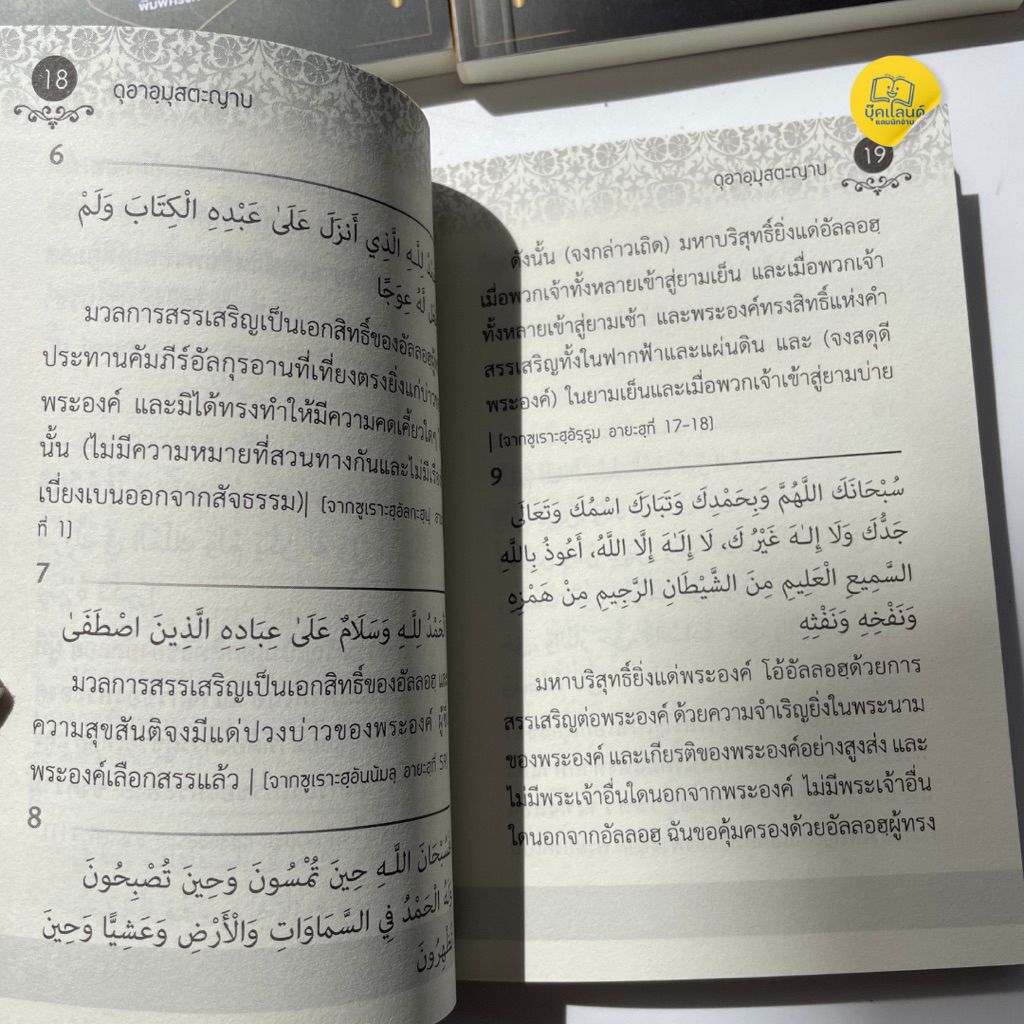 พิมพ์ครั้งที่
บุ๊คแลนด์
แดนนักอ่าน
18
ดุอาอฺมุสตะญาบ
6
لِلَّهِ الَّذِي أَنزَلَ عَلَىٰ عَبْدِهِ الْكِتَابَ وَلَمْ
لَّهُ عِوَجًا
มวลการสรรเสริญเป็นเอกสิทธิ์ของอัลลอฮฺ
ประทานคัมภีร์อัลกุรอานที่เที่ยงตรงยิ่งแก่บ่าว
พระองค์ และมิได้ทรงทำให้มีความคดเคี้ยวใดๆ
นั้น (ไม่มีความหมายที่สวนทางกันและไม่มี
เบี่ยงเบนออกจากสัจธรรม)| [จากซูเราะฮฺอัลกะฮฺฟฺ
ที่ 1]
7
الْحَمْدُ لِلَّهِ وَسَلَامٌ عَلَىٰ عِبَادِهِ الَّذِينَ اصْطَفَىٰ
มวลการสรรเสริญเป็นเอกสิทธิ์ของอัลลอฮฺ และ
ความสุขสันติจงมีแด่ปวงบ่าวของพระองค์ ผู้ซึ่ง
พระองค์เลือกสรรแล้ว | [จากซูเราะฮฺอันนัมลฺ อายะฮฺที่
8
سُبْحَانَ اللَّهِ حِينَ تُمْسُونَ وَحِينَ تُصْبِحُونَ
وَلَهُ الْحَمْدُ فِي السَّمَاوَاتِ وَالْأَرْضِ وَعَشِيًّا وَحِينَ
تُظْهِرُونَ
19
ดุอาอฺมุสตะญาบ
ดังนั้น (จงกล่าวเถิด) มหาบริสุทธิ์ยิ่งแด่อัลลอฮฺ
เมื่อพวกเจ้าทั้งหลายเข้าสู่ยามเย็น และเมื่อพวกเจ้า
ทั้งหลายเข้าสู่ยามเช้า และพระองค์ทรงสิทธิ์แห่งคำ
สรรเสริญทั้งในฟากฟ้าและแผ่นดิน และ (จงสดุดี
พระองค์) ในยามเย็นและเมื่อพวกเจ้าเข้าสู่ยามบ่าย
| [จากซูเราะฮฺอัรฺรูม อายะฮฺที่ 17-18]
9
سُبْحَانَكَ اللَّهُمَّ وَبِحَمْدِكَ وَتَبَارَكَ اسْمُكَ وَتَعَالَى
جَدُّكَ وَلَا إِلَـٰهَ غَيْرُ كَ، لَا إِلَـٰهَ إِلَّا اللَّهُ، أَعُوذُ بِاللَّهِ
السَّمِيعِ الْعَلِيمِ مِنَ الشَّيْطَانِ الرَّجِيمِ مِنْ هَمْزِهِ
وَنَفْخِهِ وَنَفْثِهِ
มหาบริสุทธิ์ยิ่งแด่พระองค์ โอ้อัลลอฮฺด้วยการ
สรรเสริญต่อพระองค์ ด้วยความจำเริญยิ่งในพระนาม
ของพระองค์ และเกียรติของพระองค์อย่างสูงส่ง และ
ไม่มีพระเจ้าอื่นใดนอกจากพระองค์ ไม่มีพระเจ้าอื่น
ใดนอกจากอัลลอฮฺ ฉันขอคุ้มครองด้วยอัลลอฮฺผู้ทรง